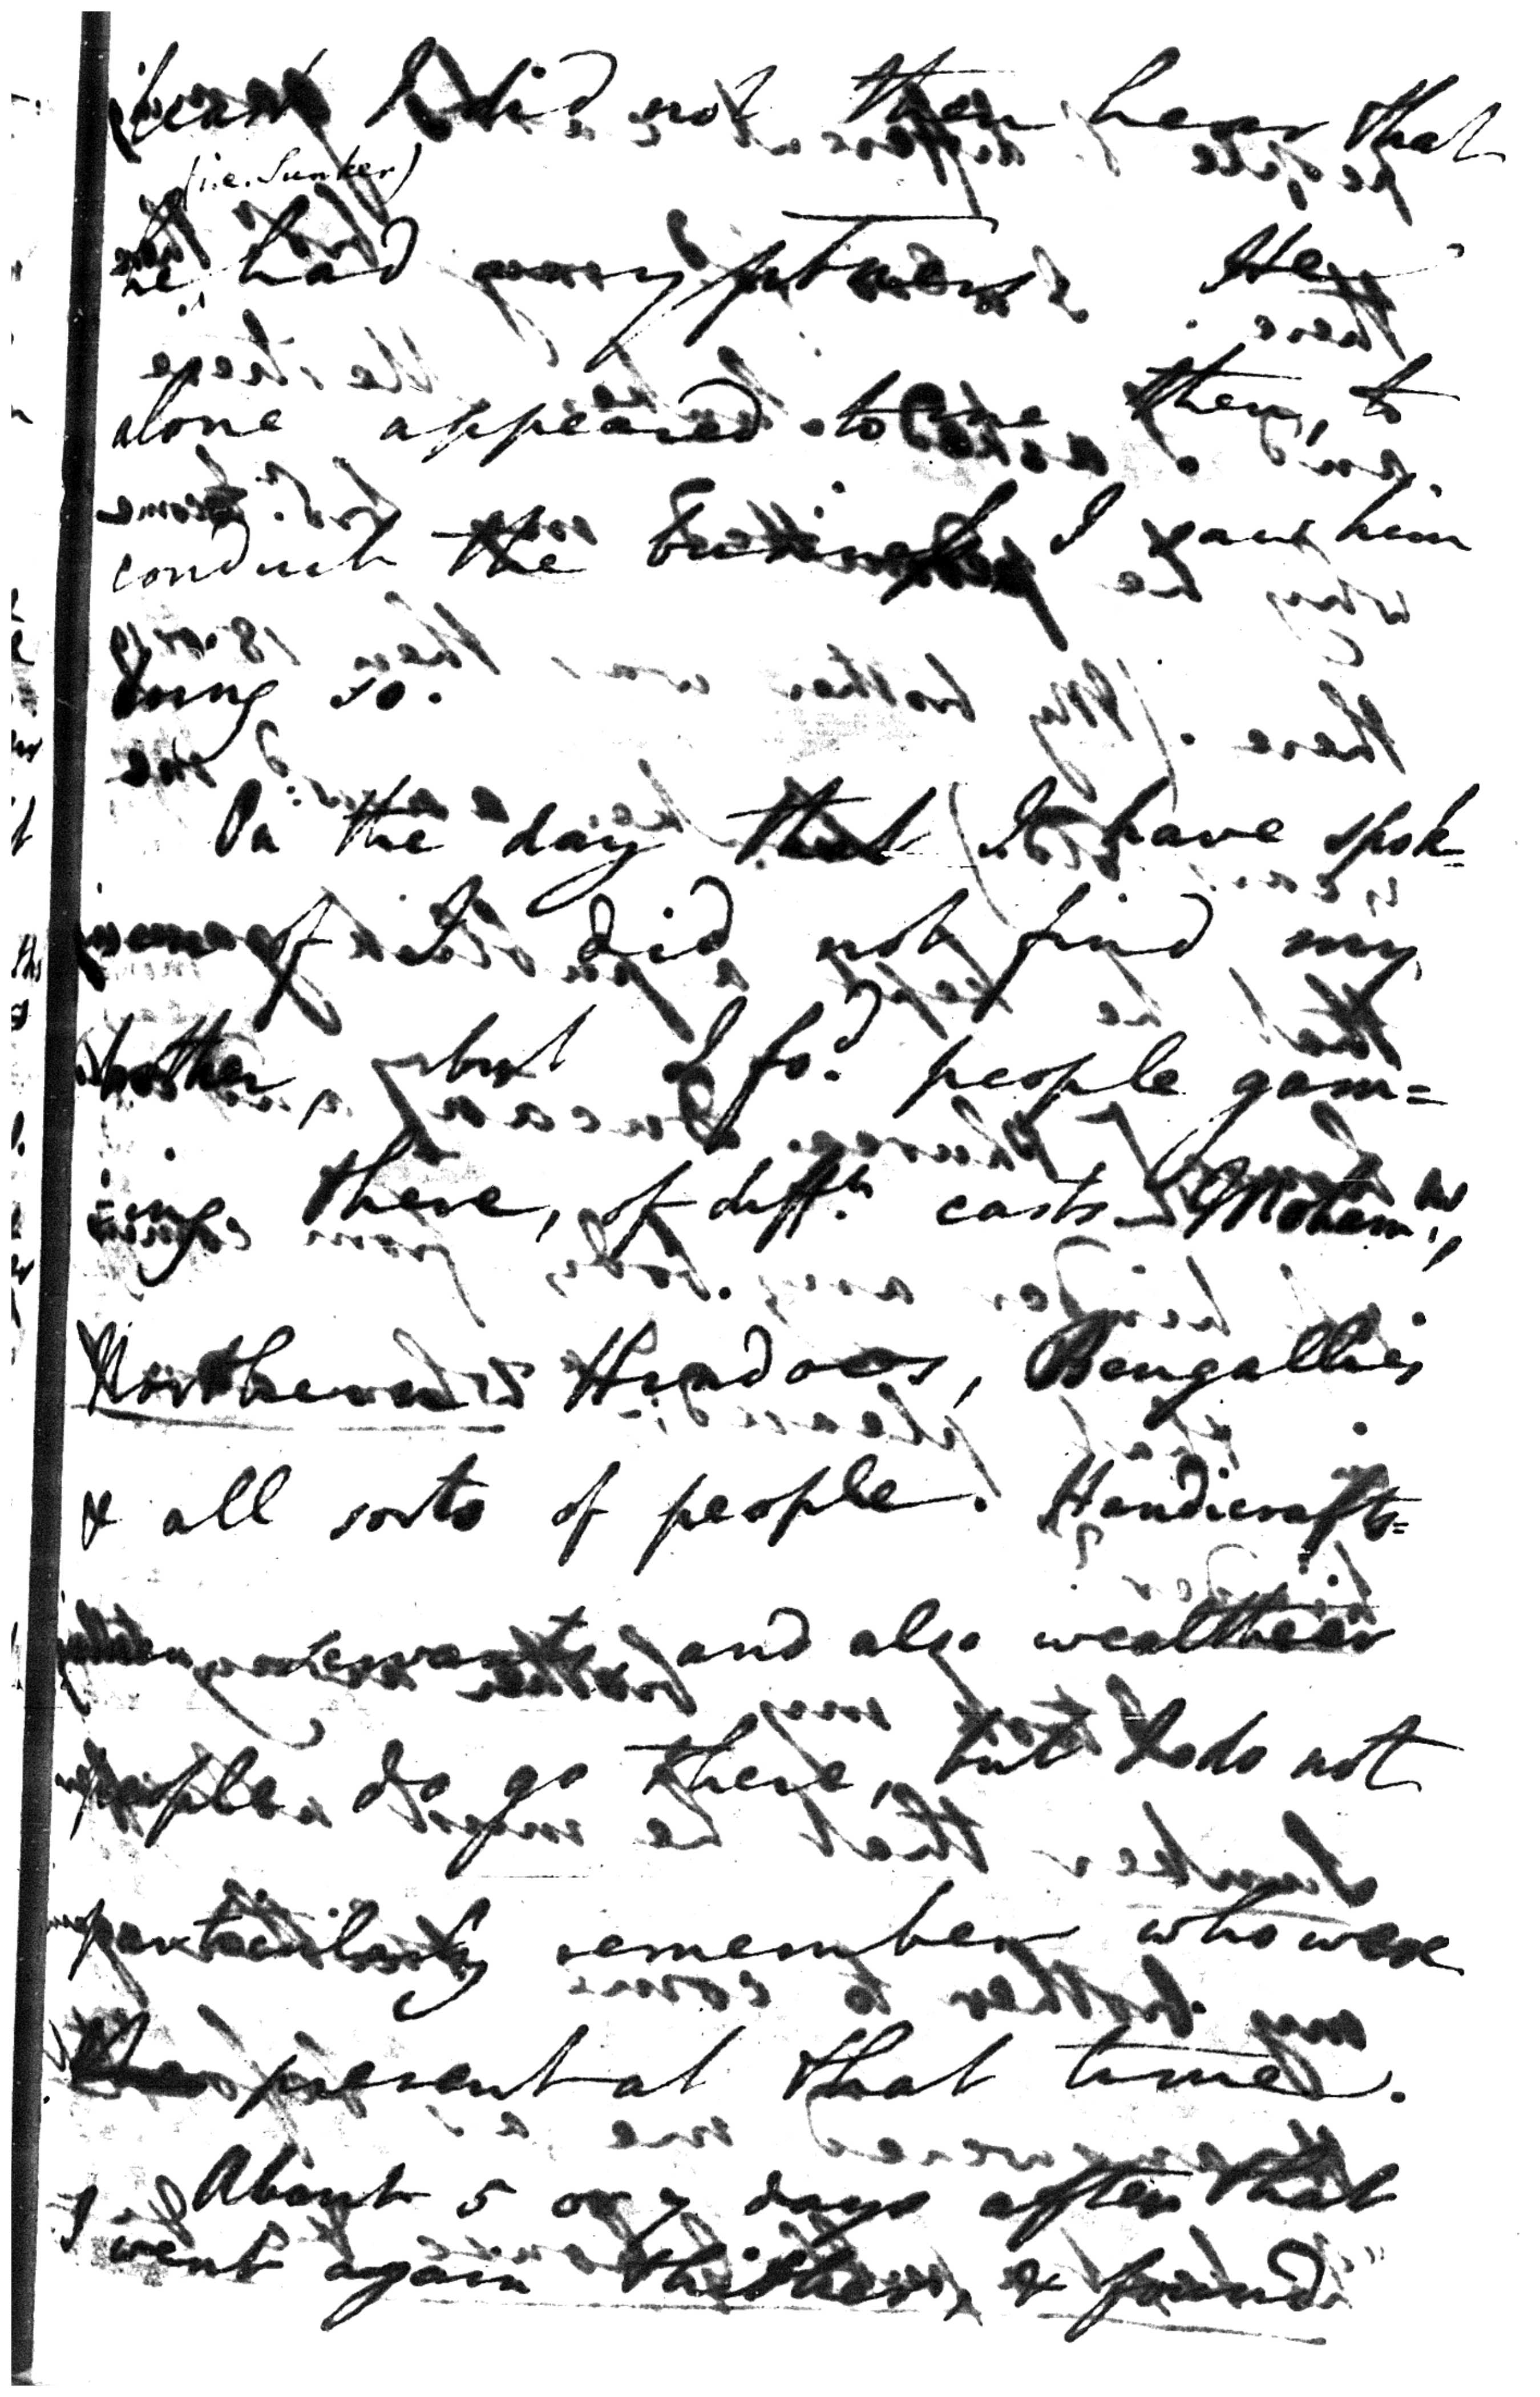 I did not then hear that
(i.e. Sunker)
he had any ptners. He
alone appeared to me then, to
conduct the business, I saw him
doing so.
On the day that I have spok=
of I did not find my
brother, but I fod people gam=
ing there, of difft casts Mohamns,
Northern Hindoos, Bengallies
& all sorts of people. Handicrafts=
men, servants and also wealthier
people do go there, but I do not
particularly remember who were
present at that time.
About 5 or 7 days after that
I went again thither, & found